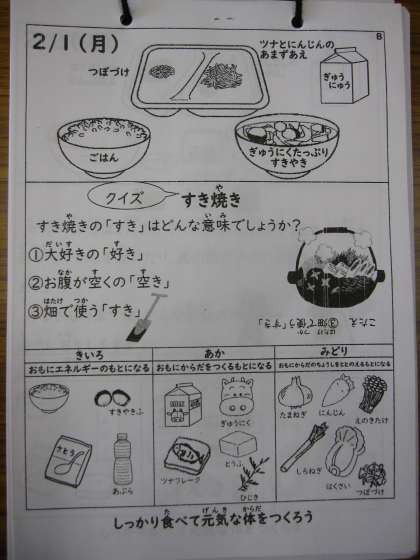 2/1(月)
8
つぼづけ
ツナとにんじんの
あまずあえ
ぎゅう
にゅう
ごはん
ぎゅうにくたっぷり
すきやき
クイズ
すき焼き
すき焼きの「すき」はどんな意味でしょうか?
①大好きの「好き」
②お腹が空くの「空き」
③畑で使う「すき」
こたえ ③畑で使う「すき」
きいろ
おもにエネルギーのもとになる
すきやきふ
さとう
あぶら
あか
おもにからだをつくるもとになる
ぎゅうにく
ツナフレーク
とうふ
ひじき
みどり
おもにからだのちょうしをととのえるもとになる
たまねぎ
にんじん
えのきたけ
しらねぎ
はくさい
つぼづけ
しっかり食べて元気な体をつくろう